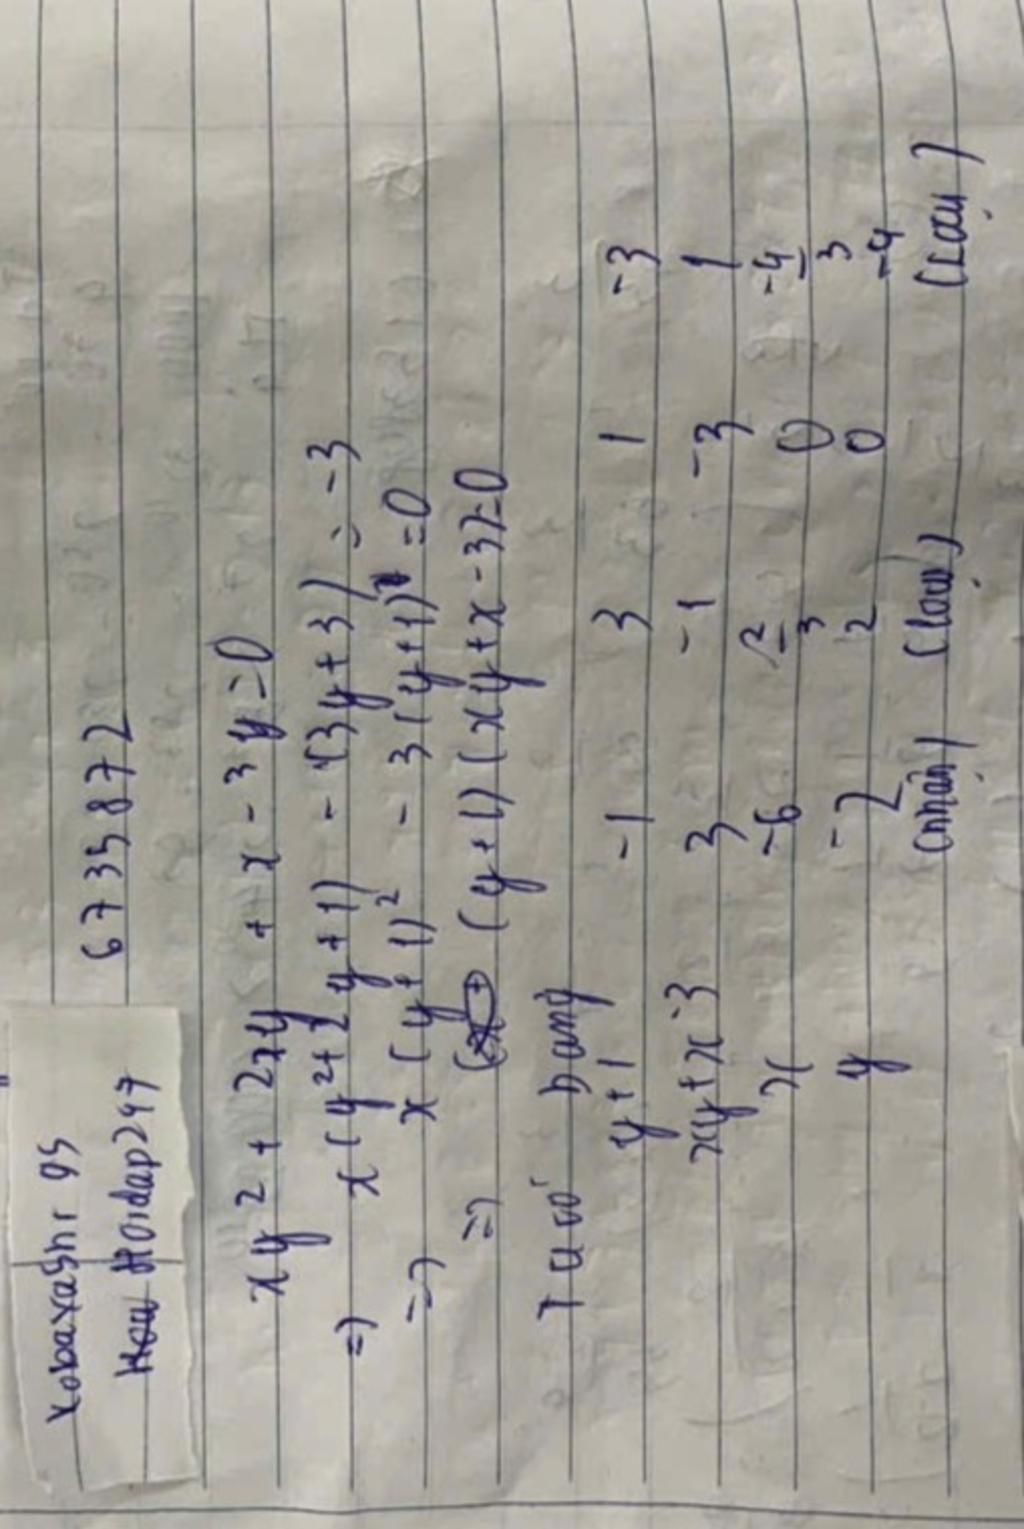 xobaxashr 95
Hoidap247
67335872
xy2 + 2xy + x - 3y = 0
=) x (y2 + 2 y + 1) - (3y + 3) = -3
=) x (y + 1)2 - 3 (y + 1) = 0
=) (y + 1) (xy + x - 3) = 0
bang
y + 1 -1 3 1 -3
xy + x - 3 3 -1 -3 1
x -6 2/3 0 -4/3
y -2 2 0 -4
(nhận) (loại) (loại)